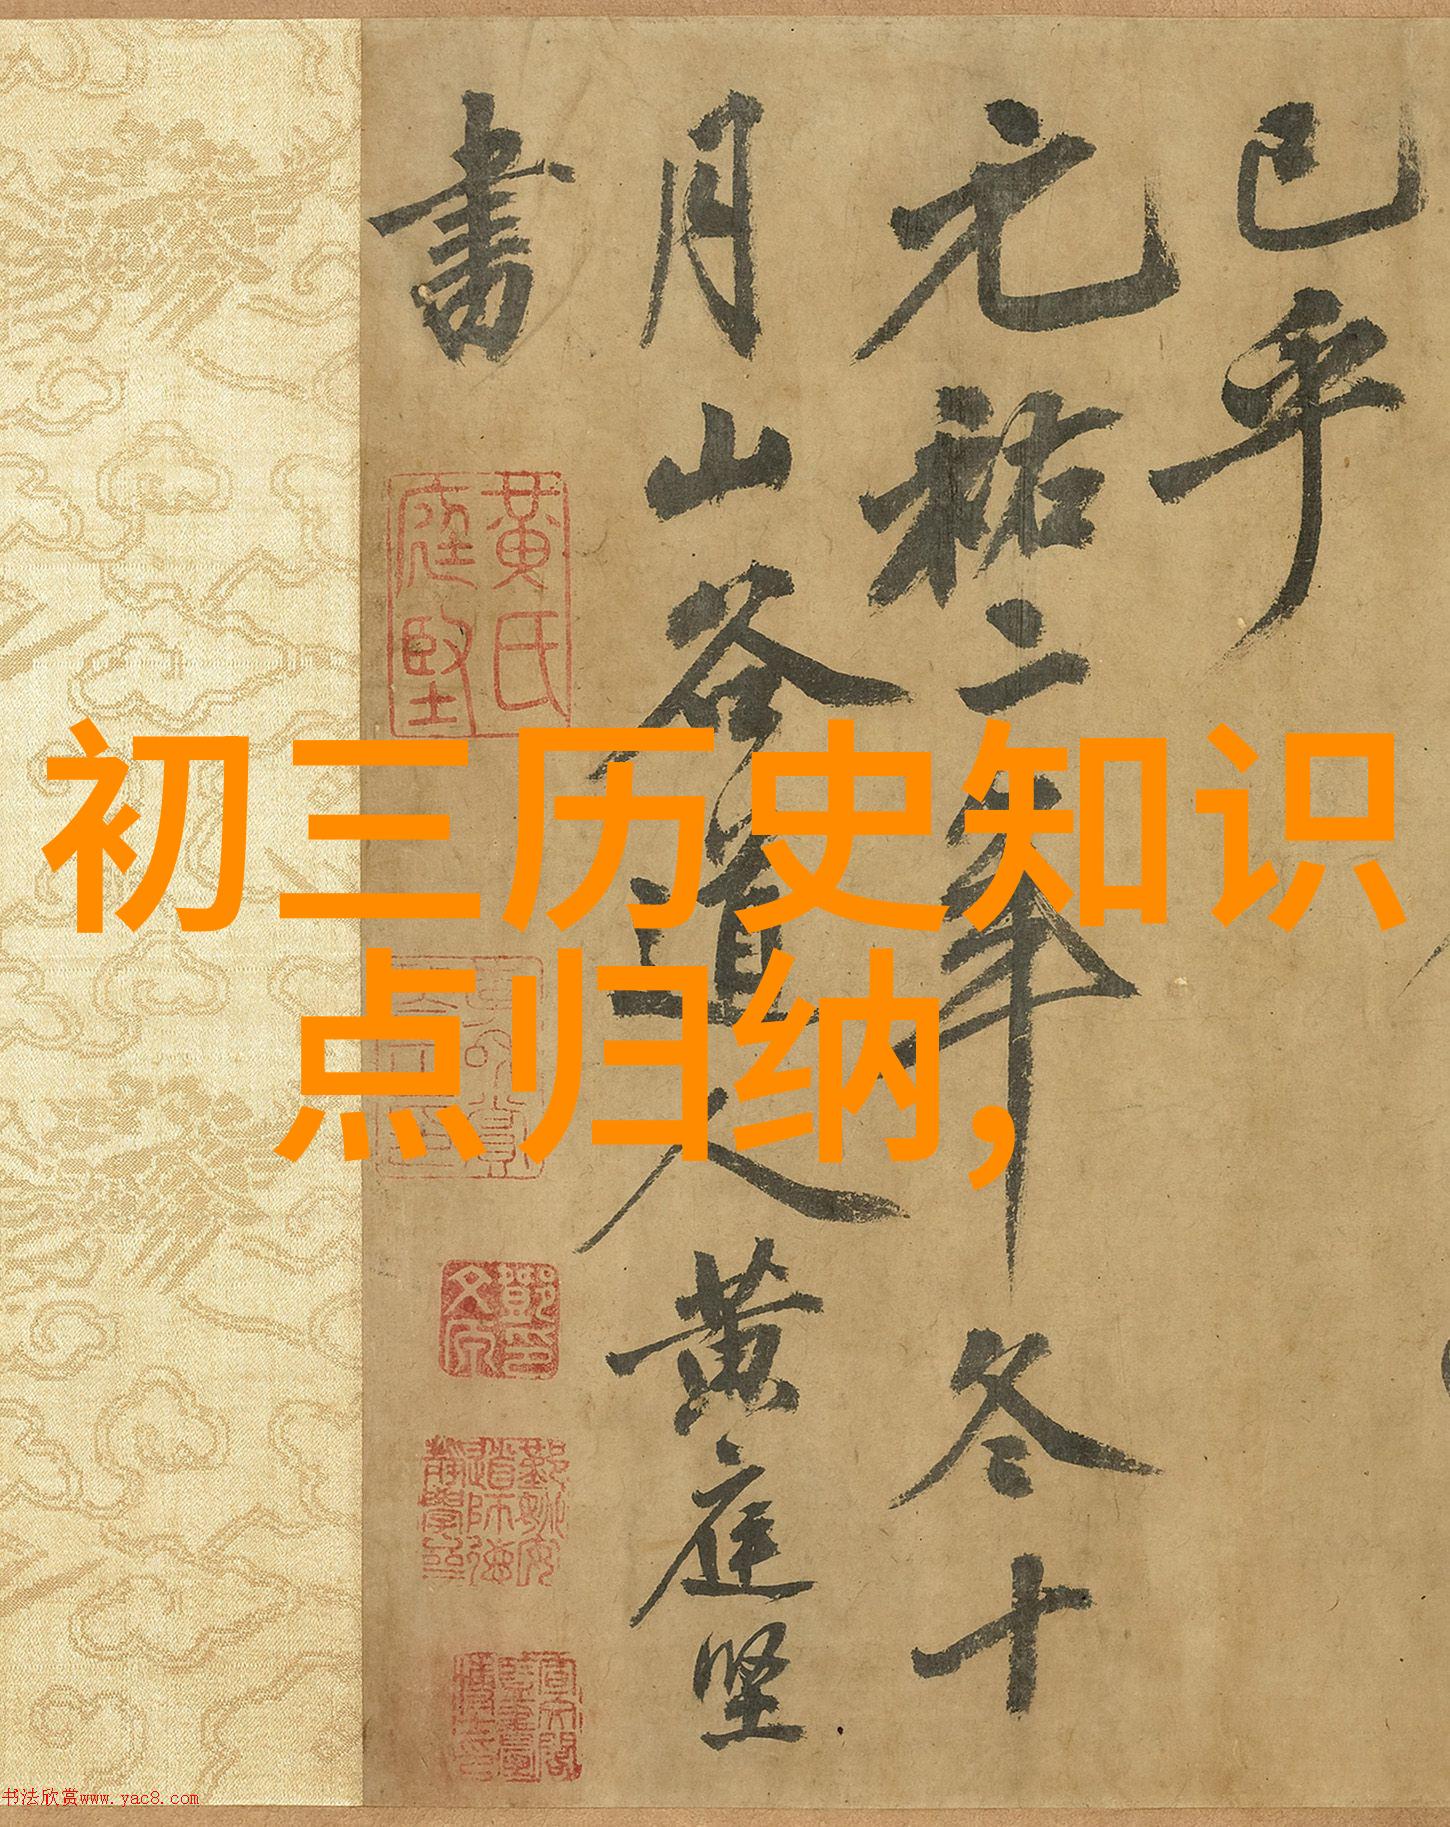 已乎
元祐二年冬十
月山谷道人黄庭坚
書
黄氏
庭堅
初三历史知识
点归纳，
书法欣赏www.yac8.com